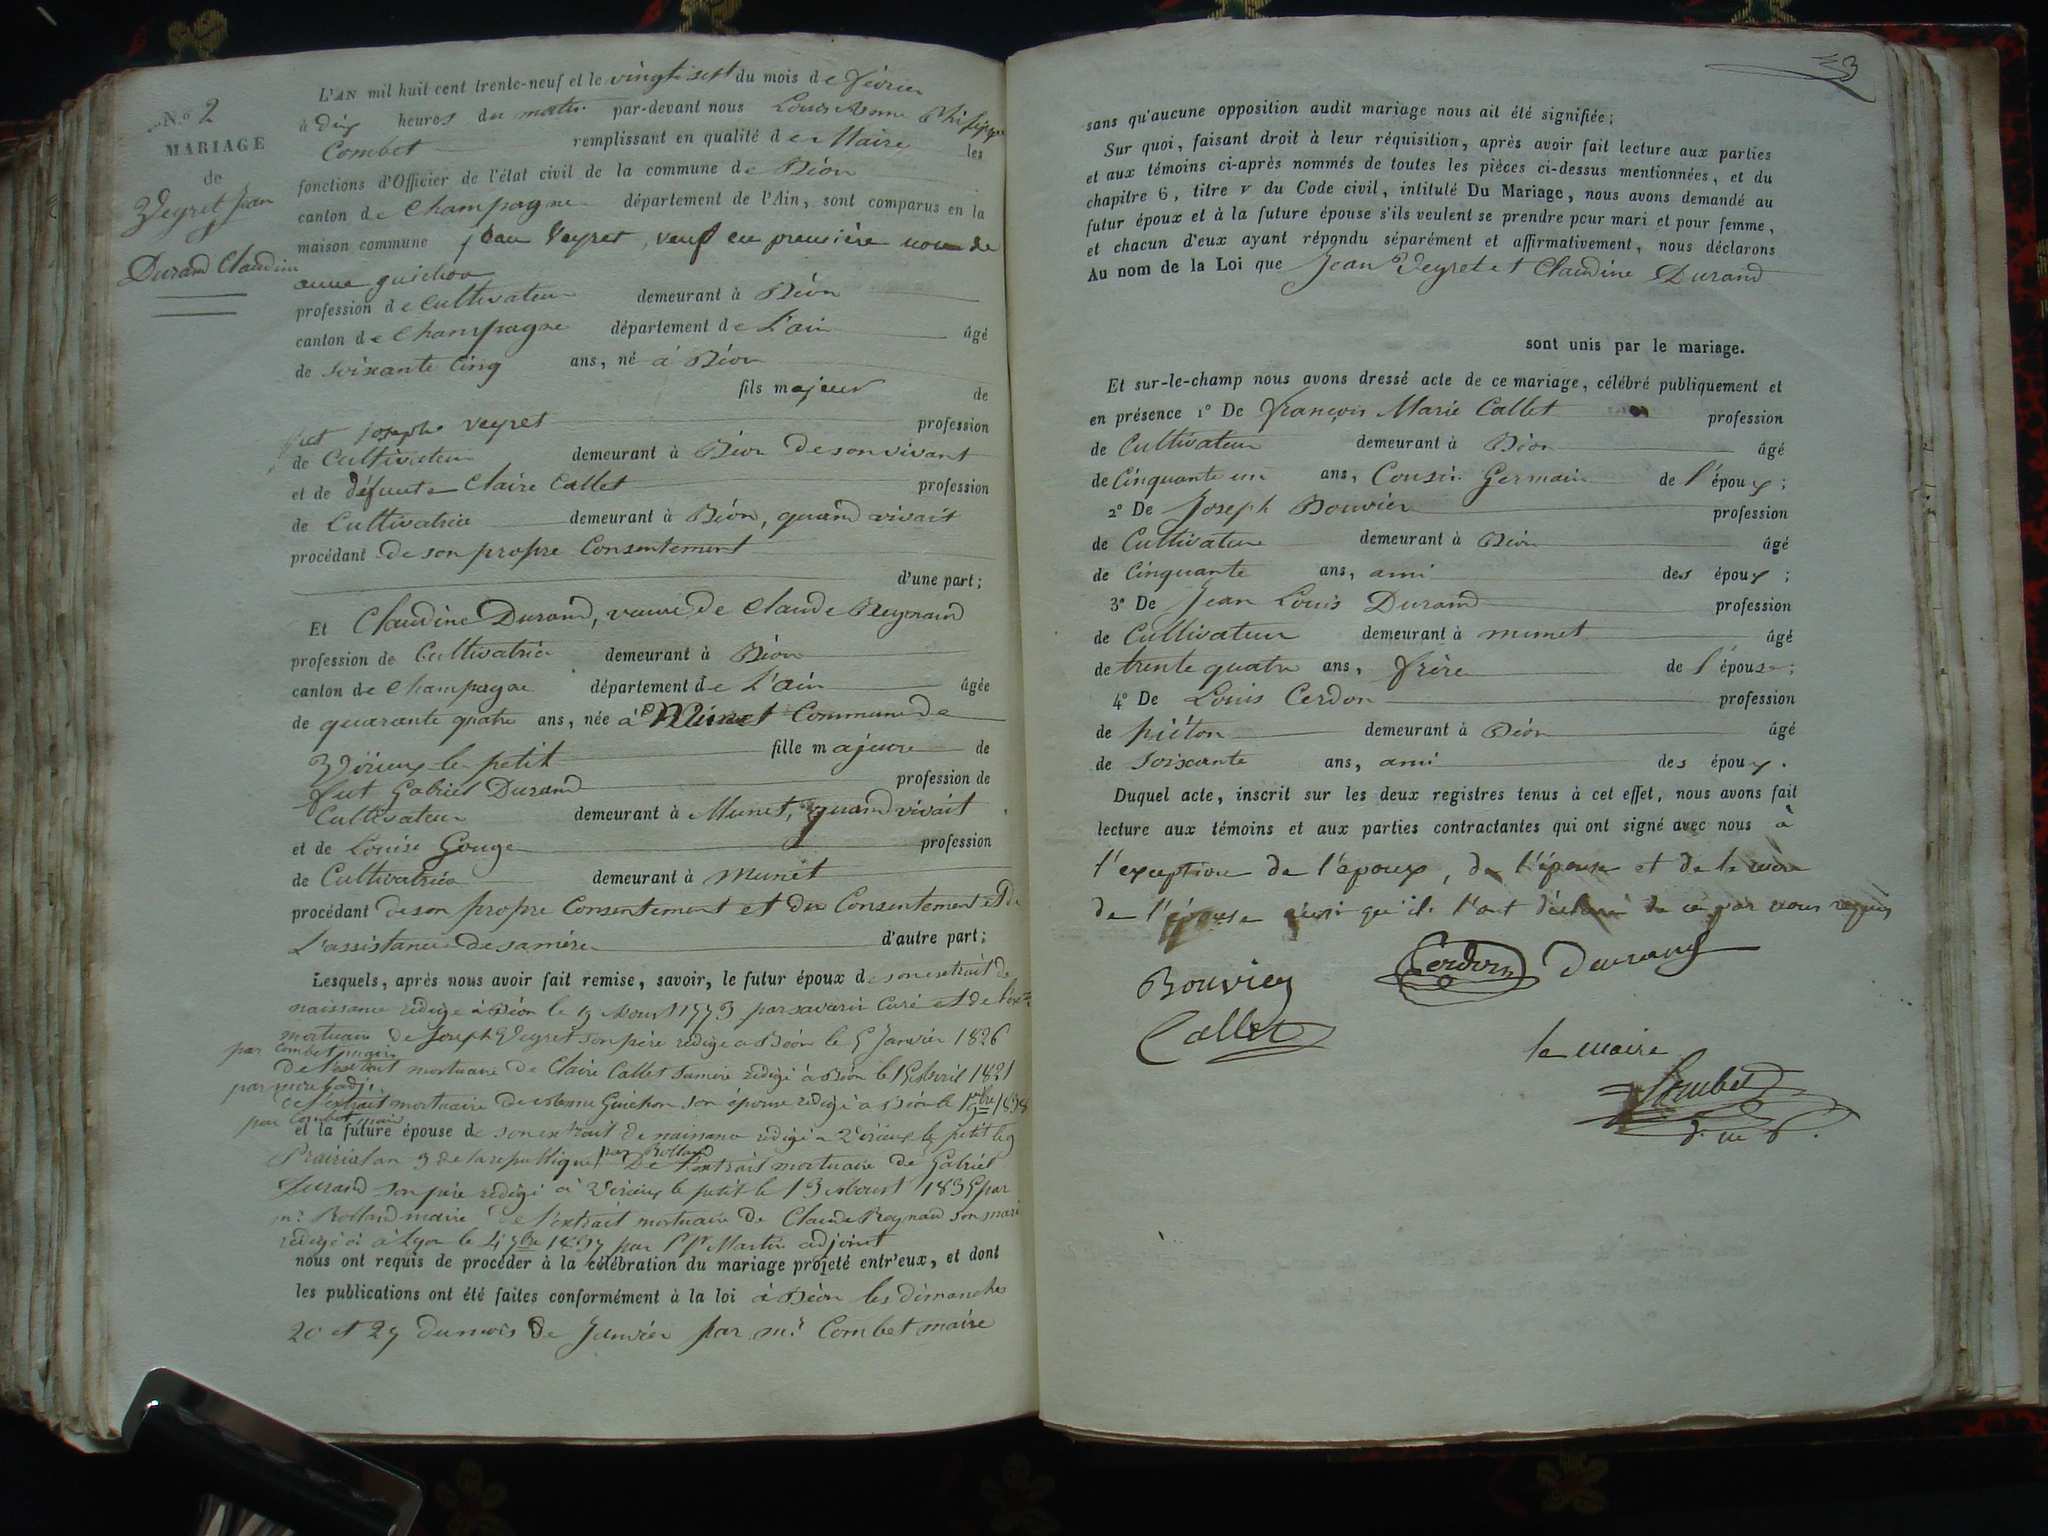 N.º 2
MARIAGE
de
Veyret Jean
Durand Claudine
L'AN mil huit cent trente-neuf et le vingt sept du mois de février
à dix heures du matin par-devant nous Louis Philippe
Combet remplissant en qualité de Maire les
fonctions d'Officier de l'état civil de la commune de Béon
canton de Champagne département de l'Ain, sont comparus en la
maison commune Jean Veyret, veuf en première noce de
anne guichon
profession de Cultivateur demeurant à Béon
canton de Champagne département de L'ain âgé
de soixante cinq ans, né à Béon
fils majeur de
fut Joseph Veyret profession
de Cultivateur demeurant à Béon de son vivant
et de défunte Claire Callet profession
de Cultivatrice demeurant à Béon, quand vivait
procédant de son propre Consentement
d'une part;
Et Claudine Durand, veuve de Claude Reynaud
profession de Cultivatrice demeurant à Béon
canton de Champagne département de L'ain âgée
de quarante quatre ans, née à Munet Commune de
Virieux le petit fille majeure de
fut Gabriel Durand profession de
Cultivateur demeurant à Munet, quand vivait
et de Louise Gouge profession
de Cultivatrice demeurant à Munet
procédant de son propre Consentement et du Consentement et de
L'assistance de sa mère d'autre part;
Lesquels, après nous avoir fait remise, savoir, le futur époux de son extrait de
naissance rédigé à Béon le 19 Aoust 1773 par savarin Curé et de l'ext
mortuaire de Joseph Veyret son père rédigé à Béon le 5 Janvier 1826
par Combet maire
de l'extrait mortuaire de Claire Callet sa mère rédigé à Béon le 15 avril 1821
par adj.
de l'extrait mortuaire de anne Guichon son épouse rédigé à Béon le 1838
par Combet maire
et la future épouse de son extrait de naissance rédigé à Virieux le petit le 9
Prairial an 3 de la republique par Rolland De l'extrait mortuaire de Gabriel
Durand son père rédigé à Virieux le petit le 13 Aoust 1835 par
mr Rolland maire de l'extrait mortuaire de Claude Reynaud son mari
rédigé à Lyon le 4 7bre 1837 par Martin adjoint
nous ont requis de procéder à la célébration du mariage projeté entr'eux, et dont
les publications ont été faites conformément à la loi à Béon les dimanches
20 et 27 du mois de Janvier par mr Combet maire
3
sans qu'aucune opposition audit mariage nous ait été signifiée;
Sur quoi, faisant droit à leur réquisition, après avoir fait lecture aux parties
et aux témoins ci-après nommés de toutes les pièces ci-dessus mentionnées, et du
chapitre 6, titre v du Code civil, intitulé Du Mariage, nous avons demandé au
futur époux et à la future épouse s'ils veulent se prendre pour mari et pour femme,
et chacun d'eux ayant répondu séparément et affirmativement, nous déclarons
Au nom de la Loi que Jean Veyret et Claudine Durand
sont unis par le mariage.
Et sur-le-champ nous avons dressé acte de ce mariage, célébré publiquement et
en présence 1º De françois Marie Callet profession
de Cultivateur demeurant à Béon âgé
de Cinquante un ans, Cousin Germain de l'époux;
2º De Joseph Bouvier profession
de Cultivateur demeurant à Béon âgé
de Cinquante ans, ami des époux;
3º De Jean Louis Durand profession
de Cultivateur demeurant à munet âgé
de trente quatre ans, frère de l'épouse;
4º De Louis Cerdon profession
de piéton demeurant à Béon âgé
de soixante ans, ami des époux.
Duquel acte, inscrit sur les deux registres tenus à cet effet, nous avons fait
lecture aux témoins et aux parties contractantes qui ont signé avec nous à
l'exception de l'époux, de l'épouse et de la mère
de l'épouse ainsi qu'ils l'ont déclaré de ce par nous requis
Bouvier Cerdon Durand
Callet
le maire
Combet